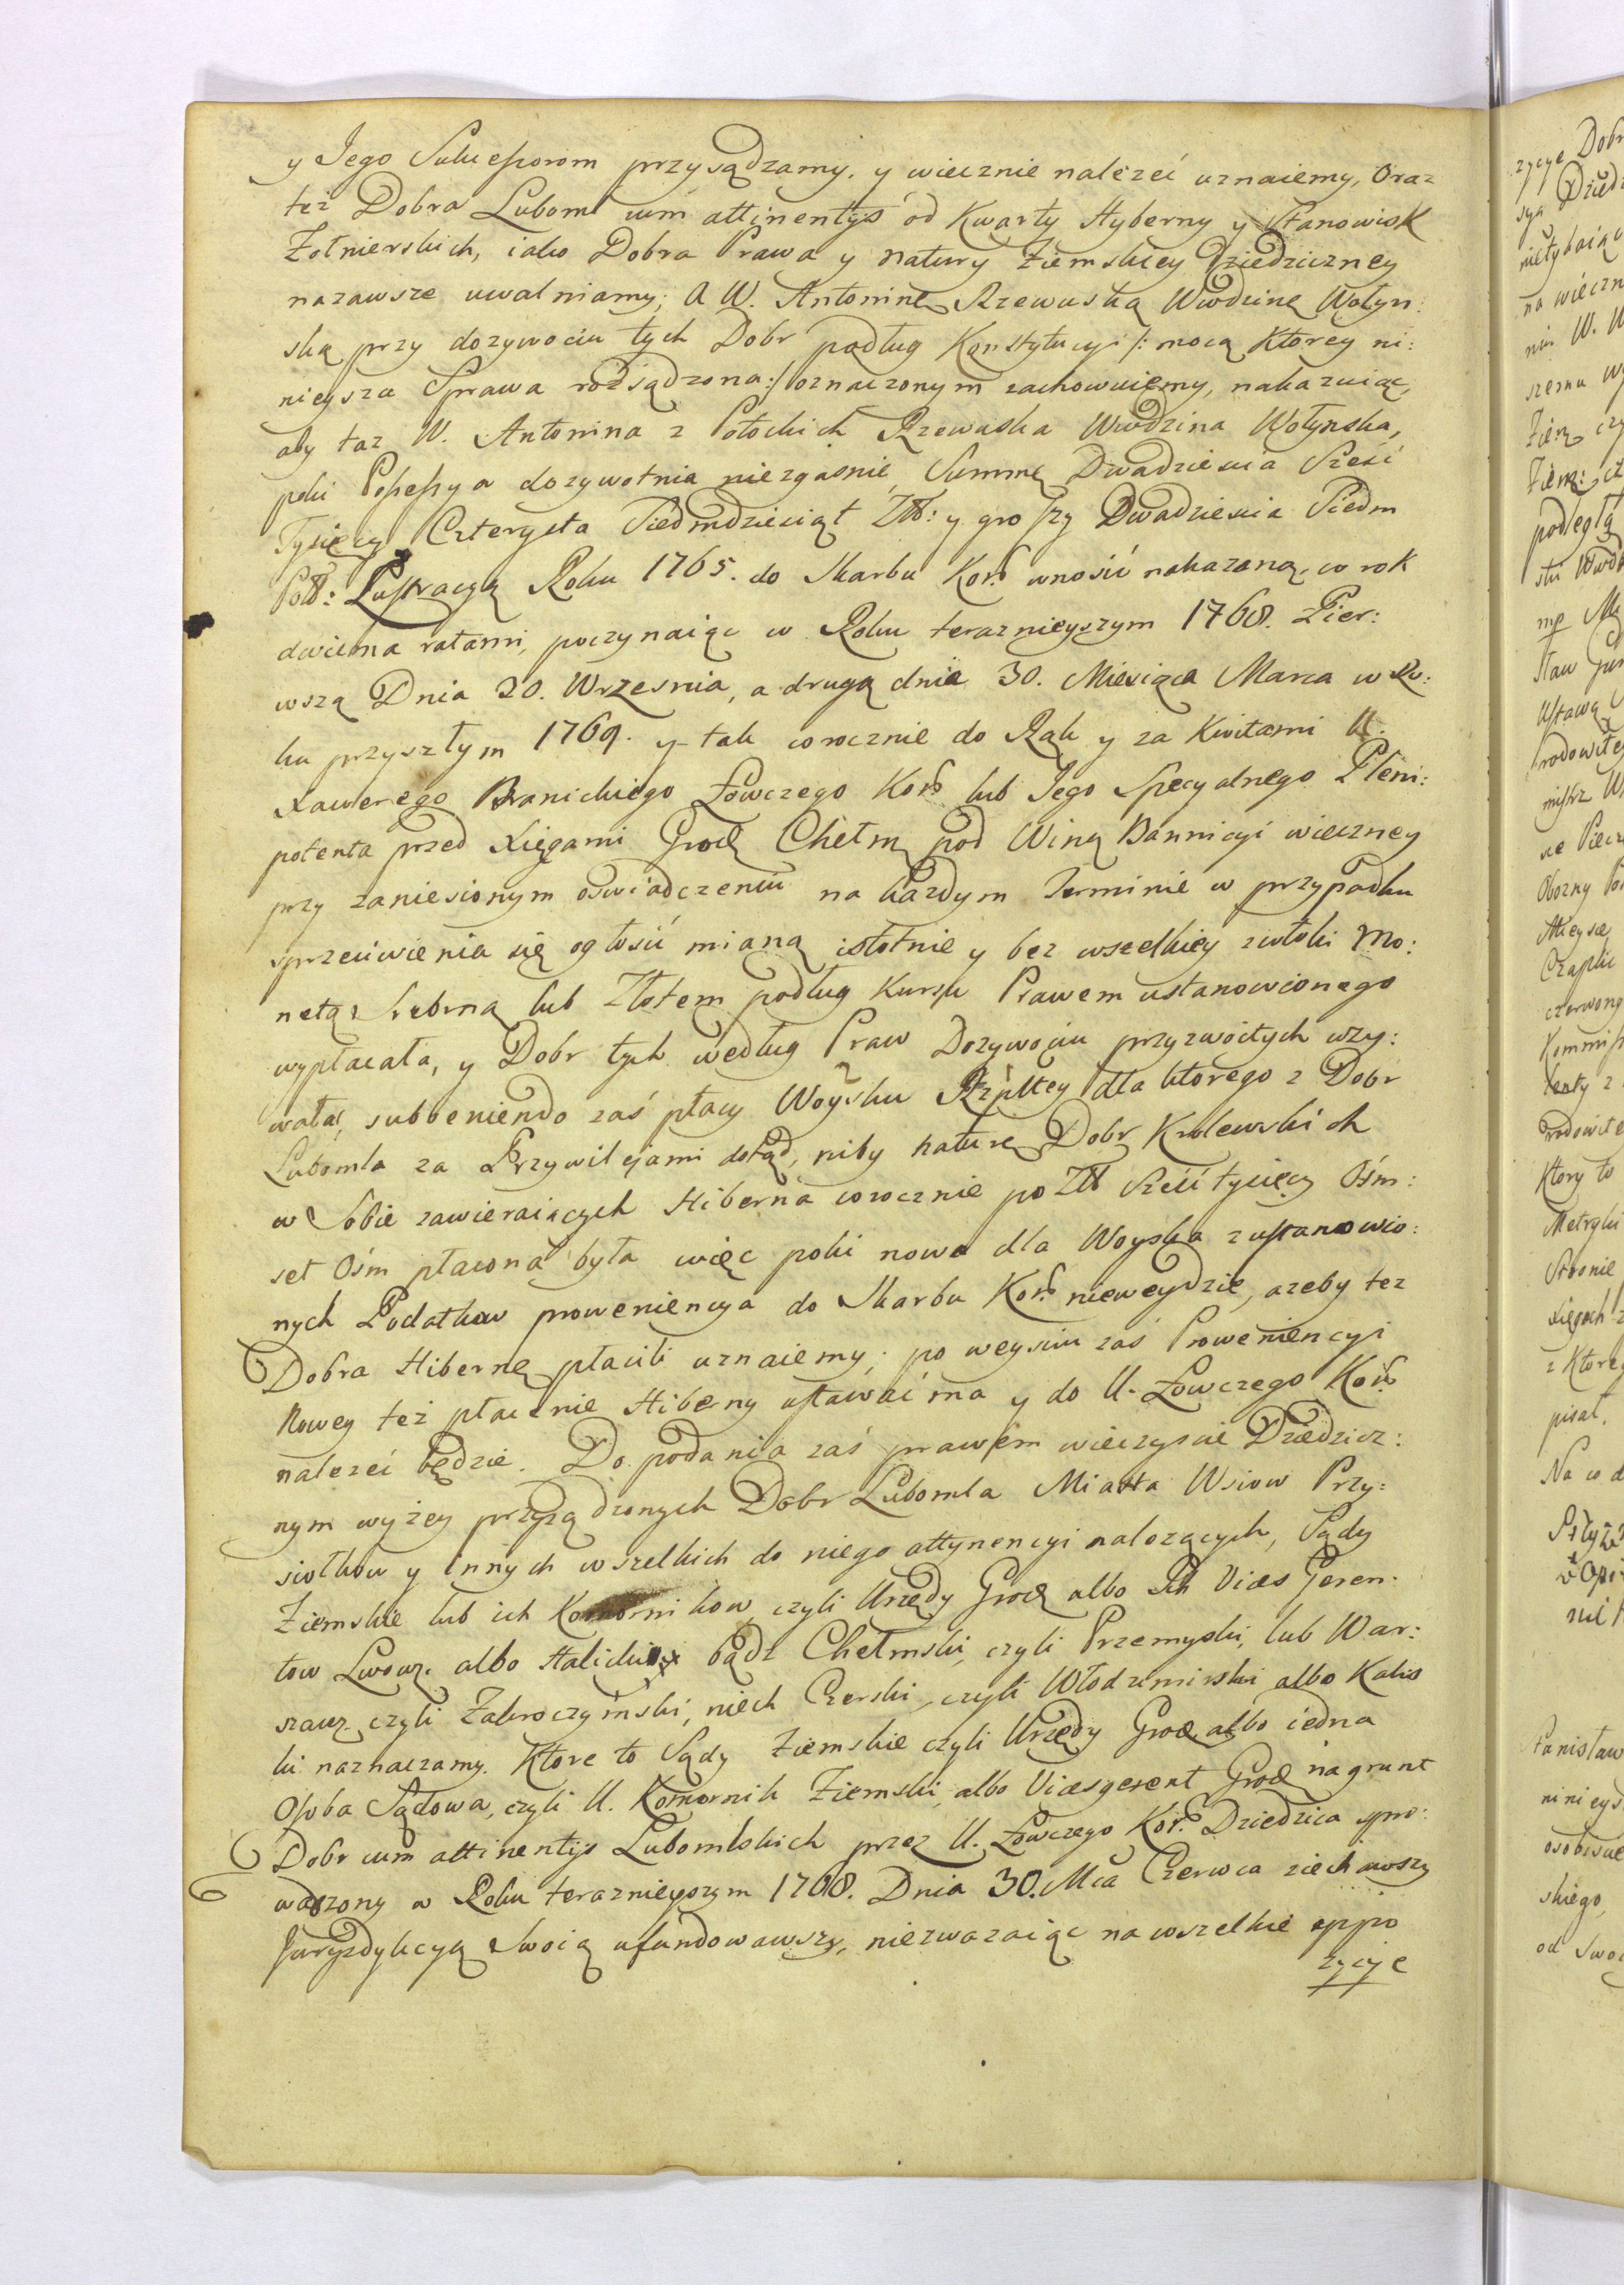 y Jego Sukcessorom przysądzamy, y wiecznie należeć uznaiemy, Oraz
też Dobra Luboml cum attinentÿs od Kwarty Hyberny y Stanowisk
Żołnierskich, iako Dobra Prawa y natury Ziemskiey Dziedziczney
nazawsze uwalniamy; A W. Antoninę Rzewuską Wwdzinę Wołyn:
ską przy dozywociu tych Dobr podług Konstytucyi /: mocą Ktorey ni:
nieysza Sprawa rozsądzona :/ oznaczonym zachowuiemy, nakazuiąc,
aby taz W. Antonina z Potockich Rzewuska Wwdzina Wołynska,
poki Possessya dozywotnia niezgasnie, Summę Dwadziescia Sześć
Tysięcy Czterysta Siedmdziesiąt Złł: y groszy Dwadziescia Siedm
Poll: Lustracyą Roku 1765. do Skarbu Kor. wnosić nakazaną, co rok
dwiema ratami, poczynaiąc w Roku teraznieyszym 1768. Pier:
wszą Dnia 20. Wrzesnia, a drugą dnia 30. Miesiąca Marca w Ro:
ku przyszłym 1769. y tak corocznie do Rąk y za Kwitami U.
Xawerego Branickiego Łowczego Kor. lub Jego Specyalnego Pleni:
potenta przed Xięgami Grod. Chełm. pod Winą Bannicyi wieczney
przy zaniesionym oświadczeniu na kazdym Terminie w przypadku
sprzeciwienia się ogłosić mianą istotnie y bez wszelkiey zwłoki Mo:
netą Srebrną lub Złotem podług Kursu Prawem ustanowionego
wypłacała, y Dobr tych według Praw Dozywociu przyzwoitych uzy:
wała, subveniendo zaś płacy Woysku Rzpltey dla ktorego z Dobr
Lubomla za Przywilejami dotąd, niby naturę Dobr Krolewskich
w Sobie zawieraiących Hiberna corocznie po Złł Sześć tysięcy Ośm:
set Ośm płacona była więc poki nowa dla Woyska z ustanowio:
nych Podatkow proweniencya do Skarbu Kor. nieweydzie, azeby tez
Dobra Hibernę płacili uznaiemy; po weysciu zaś Proweniencyi
Nowey też płacenie Hiberny ustawać ma y do U. Łowczego Kor.
nalezeć będzie. Do podania zaś prawem wieczyscie Dziedzicz:
nym wyżey przysądzonych Dobr Lubomla Miasta Wsiow Przy:
siołkow y innych wszelkich do niego attynencyi nalozących, Sądy
Ziemskie lub ich Komornikow, czyli Urzędy Grod. albo Ich Vices Geren:
tow Lwow. albo bądz Chełmski, czyli Przemyski, lub War:
szaw. czyli Zakroczymski, niech Czerski, czyli Włodzimirski albo Kalis
ki naznaczamy. Ktore to Sądy Ziemskie czyli Urzędy Grod. albo iedna
Osoba Sądowa, czyli U. Komornik Ziemski, albo Vicesgerent Grod. na grunt
Dobr cum attinentÿs Lubomlskich przez U. Łowczego Kor. Dziedzica spro:
wadzony w Roku teraznieyszym 1768. Dnia 30. Mca Czerwca ziechawszy
Jurysdykcyą Swoią ufundowawszy, niezwazaiąc na wszelkie oppo
zycye